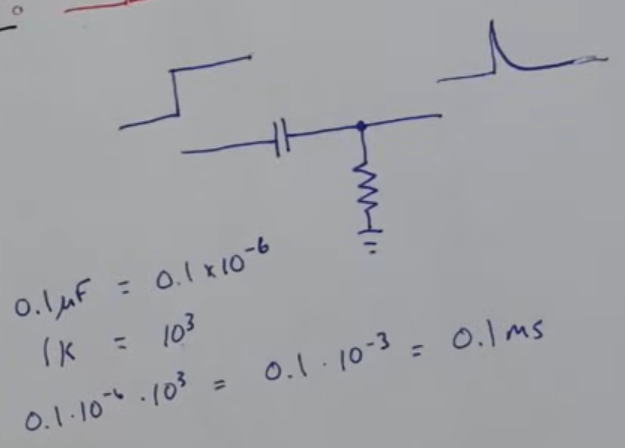 0.1μF = 0.1 x 10⁻⁶
1K = 10³
0.1·10⁻⁶ · 10³ = 0.1 · 10⁻³ = 0.1 ms